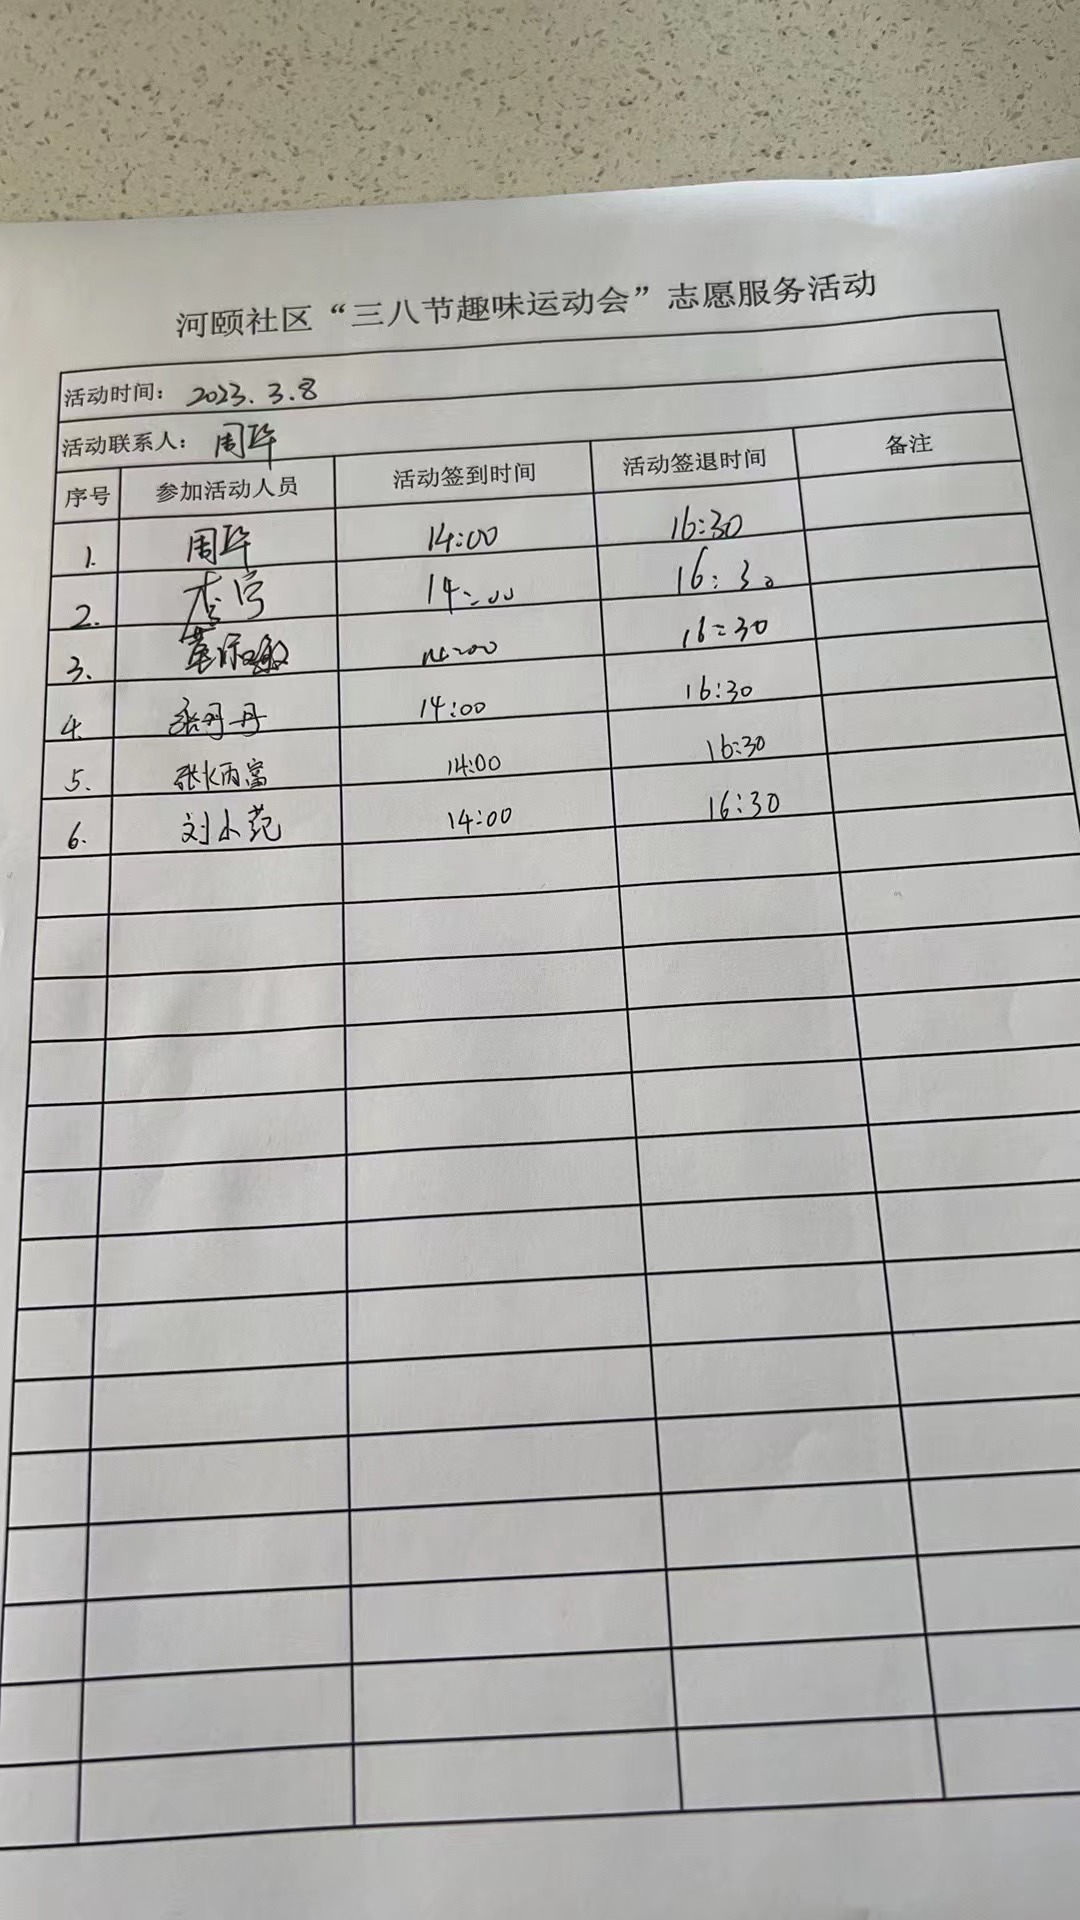 河颐社区“三八节趣味运动会”志愿服务活动
活动时间： 2023.3.8
活动联系人： 周华
序号 参加活动人员 活动签到时间 活动签退时间 备注
1. 周华 14:00 16:30
2. 李宁 14:00 16:30
3. 14:00 16:30
4. 张丹丹 14:00 16:30
5. 张丙富 14:00 16:30
6. 刘小范 14:00 16:30